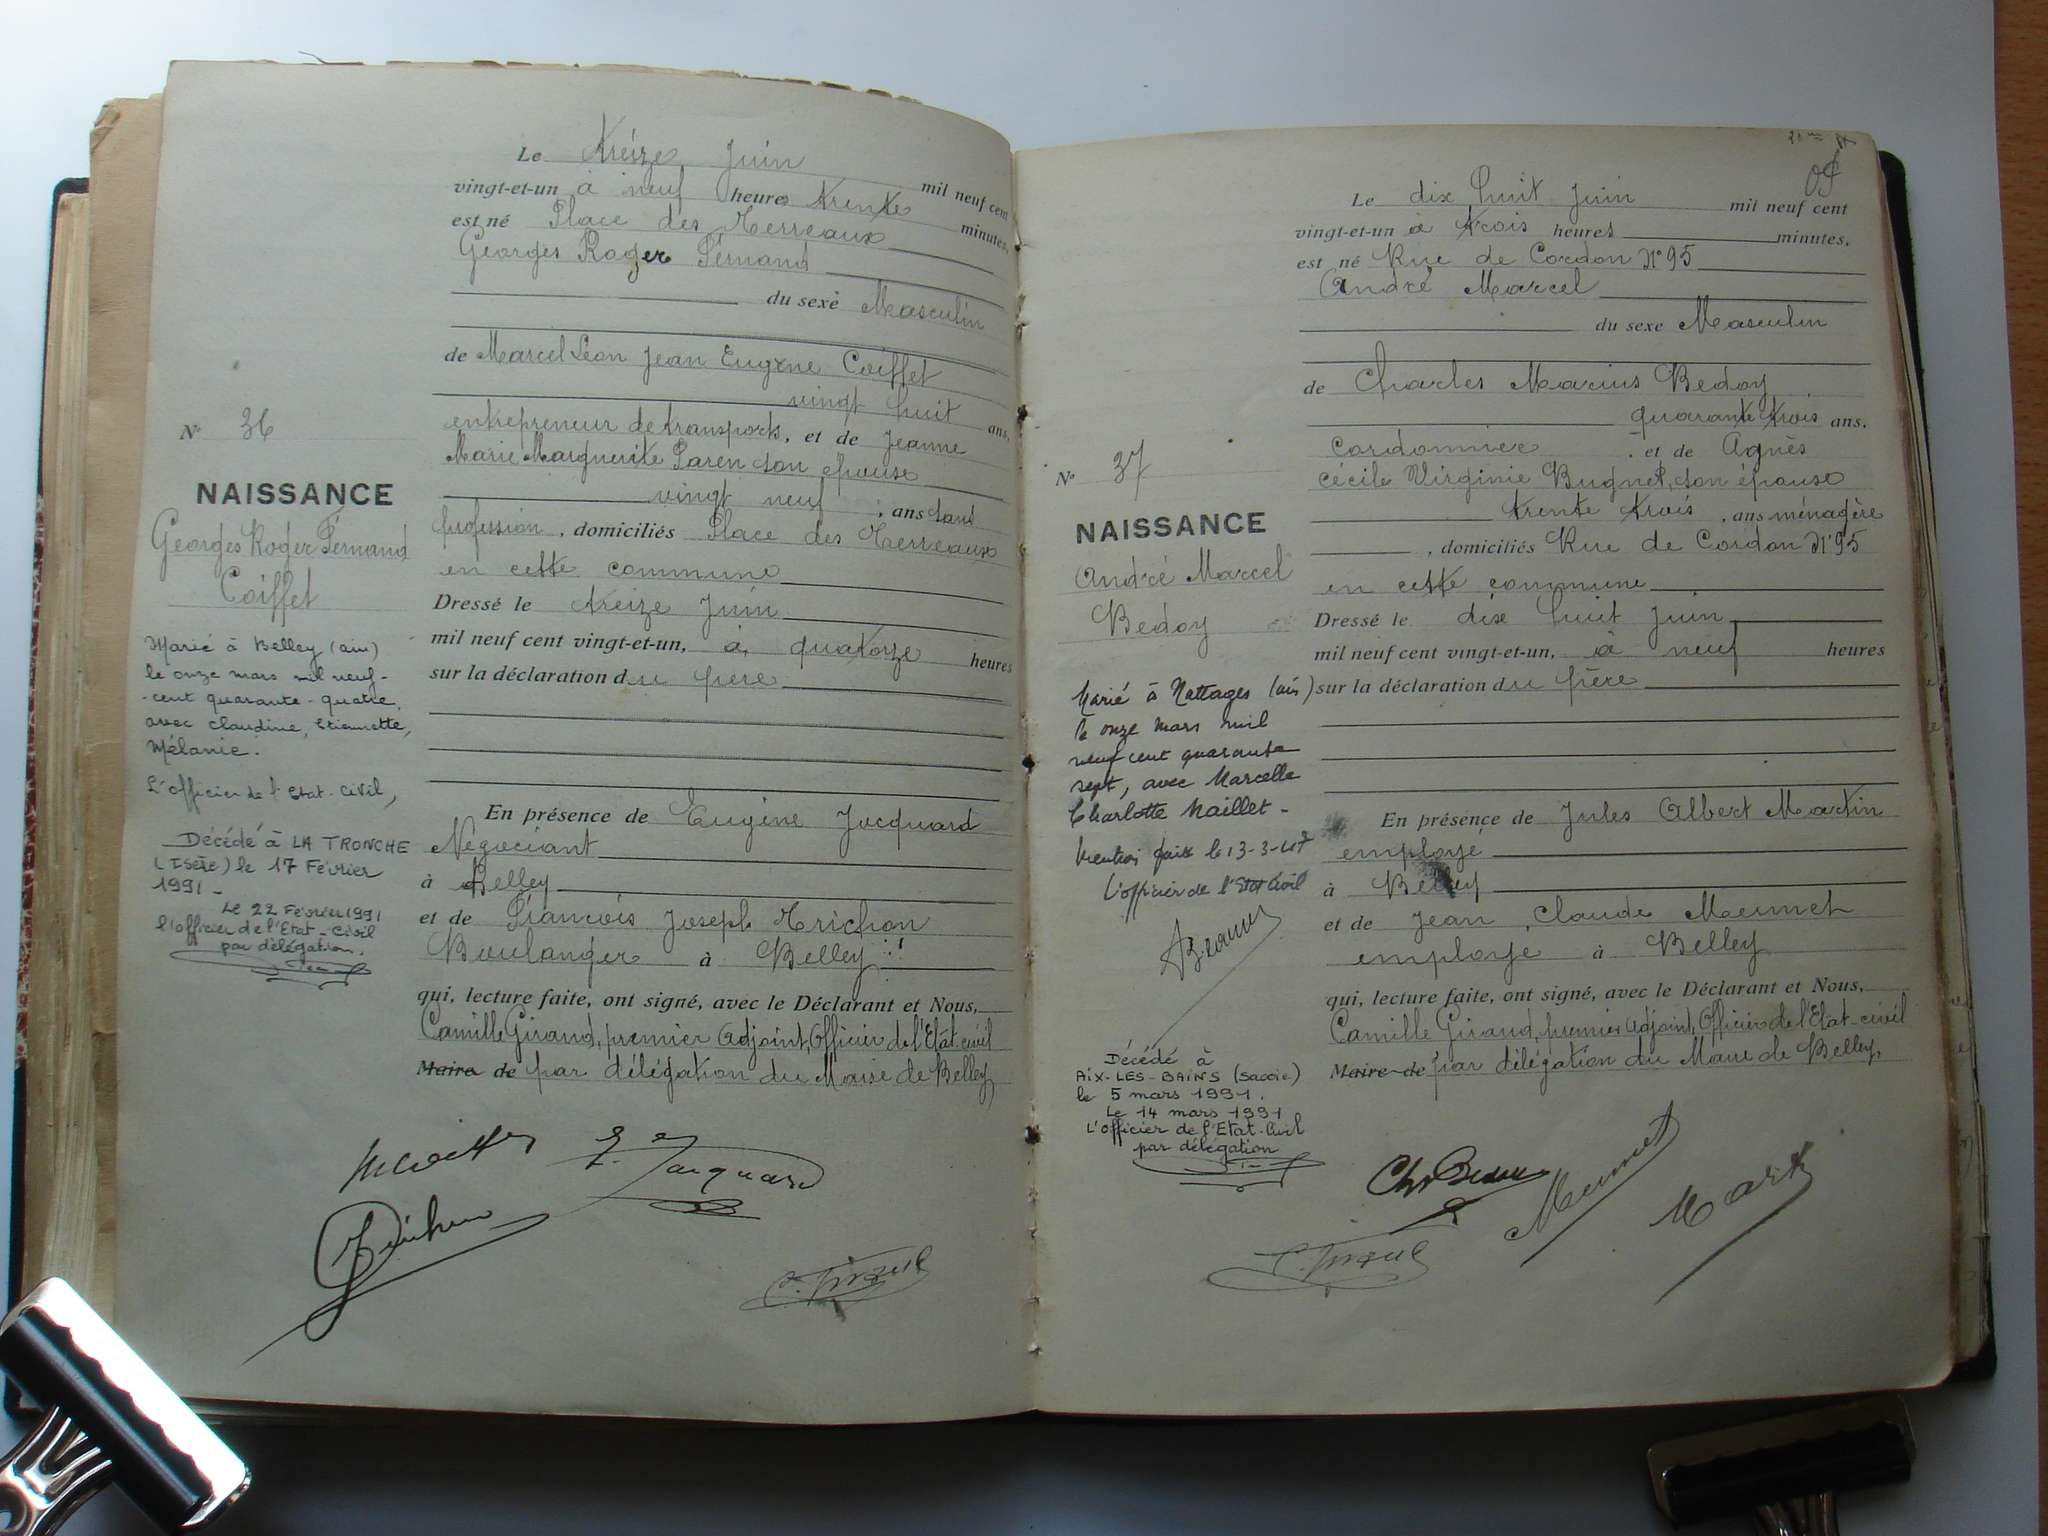 Le treize Juin mil neuf cent
vingt-et-un à neuf heures trente minutes,
est né Place des Terreaux
Georges Roger Fernand
du sexe Masculin
de Marcel Léon Jean Eugène Coiffet
vingt huit ans,
entrepreneur de transports, et de Jeanne
Marie Marguerite Paren son épouse
vingt neuf, ans sans
profession, domiciliés Place des Terreaux
en cette commune
Dressé le treize Juin
mil neuf cent vingt-et-un, à quatorze heures
sur la déclaration du père
En présence de Eugène Jacquard
Négociant
à Belley
et de François Joseph Trichon
Boulanger à Belley
qui, lecture faite, ont signé, avec le Déclarant et Nous,
Camille Giraud, premier adjoint, Officier de l'Etat-civil
Maire de par délégation du Maire de Belley
N° 36
NAISSANCE
Georges Roger Fernand
Coiffet
Marié à Belley (ain)
le onze mars mil neuf-
-cent quarante-quatre,
avec Claudine, Etiennette,
Mélanie.
L'officier de l'Etat-Civil,
Décédé à LA TRONCHE
(Isère) le 17 Février
1991-
Le 22 Février 1991
l'officier de l'Etat-Civil
par délégation.
E. Jacquard
Le dix huit Juin mil neuf cent
vingt-et-un à trois heures minutes,
est né Rue de Cordon N° 95
André Marcel
du sexe Masculin
de Charles Marius Bedoy
quarante trois ans,
Cordonnier, et de Agnès
Cécile Virginie Bugnet, son épouse
trente trois, ans ménagère
, domiciliés Rue de Cordon N° 95
en cette commune
Dressé le dix huit Juin
mil neuf cent vingt-et-un, à neuf heures
sur la déclaration du père
En présence de Jules Albert Martin
employé
à Belley
et de Jean Claude Meunet
employé à Belley
qui, lecture faite, ont signé, avec le Déclarant et Nous,
Camille Giraud, premier adjoint, Officier de l'Etat-civil
Maire de par délégation du Maire de Belley,
N° 37
NAISSANCE
André Marcel
Bedoy
Marié à Nattages (ain)
le onze mars mil
neuf cent quarante
sept, avec Marcelle
Charlotte Maillet-
Mention faite le 13-3-47
L'officier de l'Etat Civil
Décédé à
AIX-LES-BAINS (Savoie)
le 5 mars 1991.
Le 14 mars 1991
L'Officier de l'Etat-Civil
par délégation
Meunet